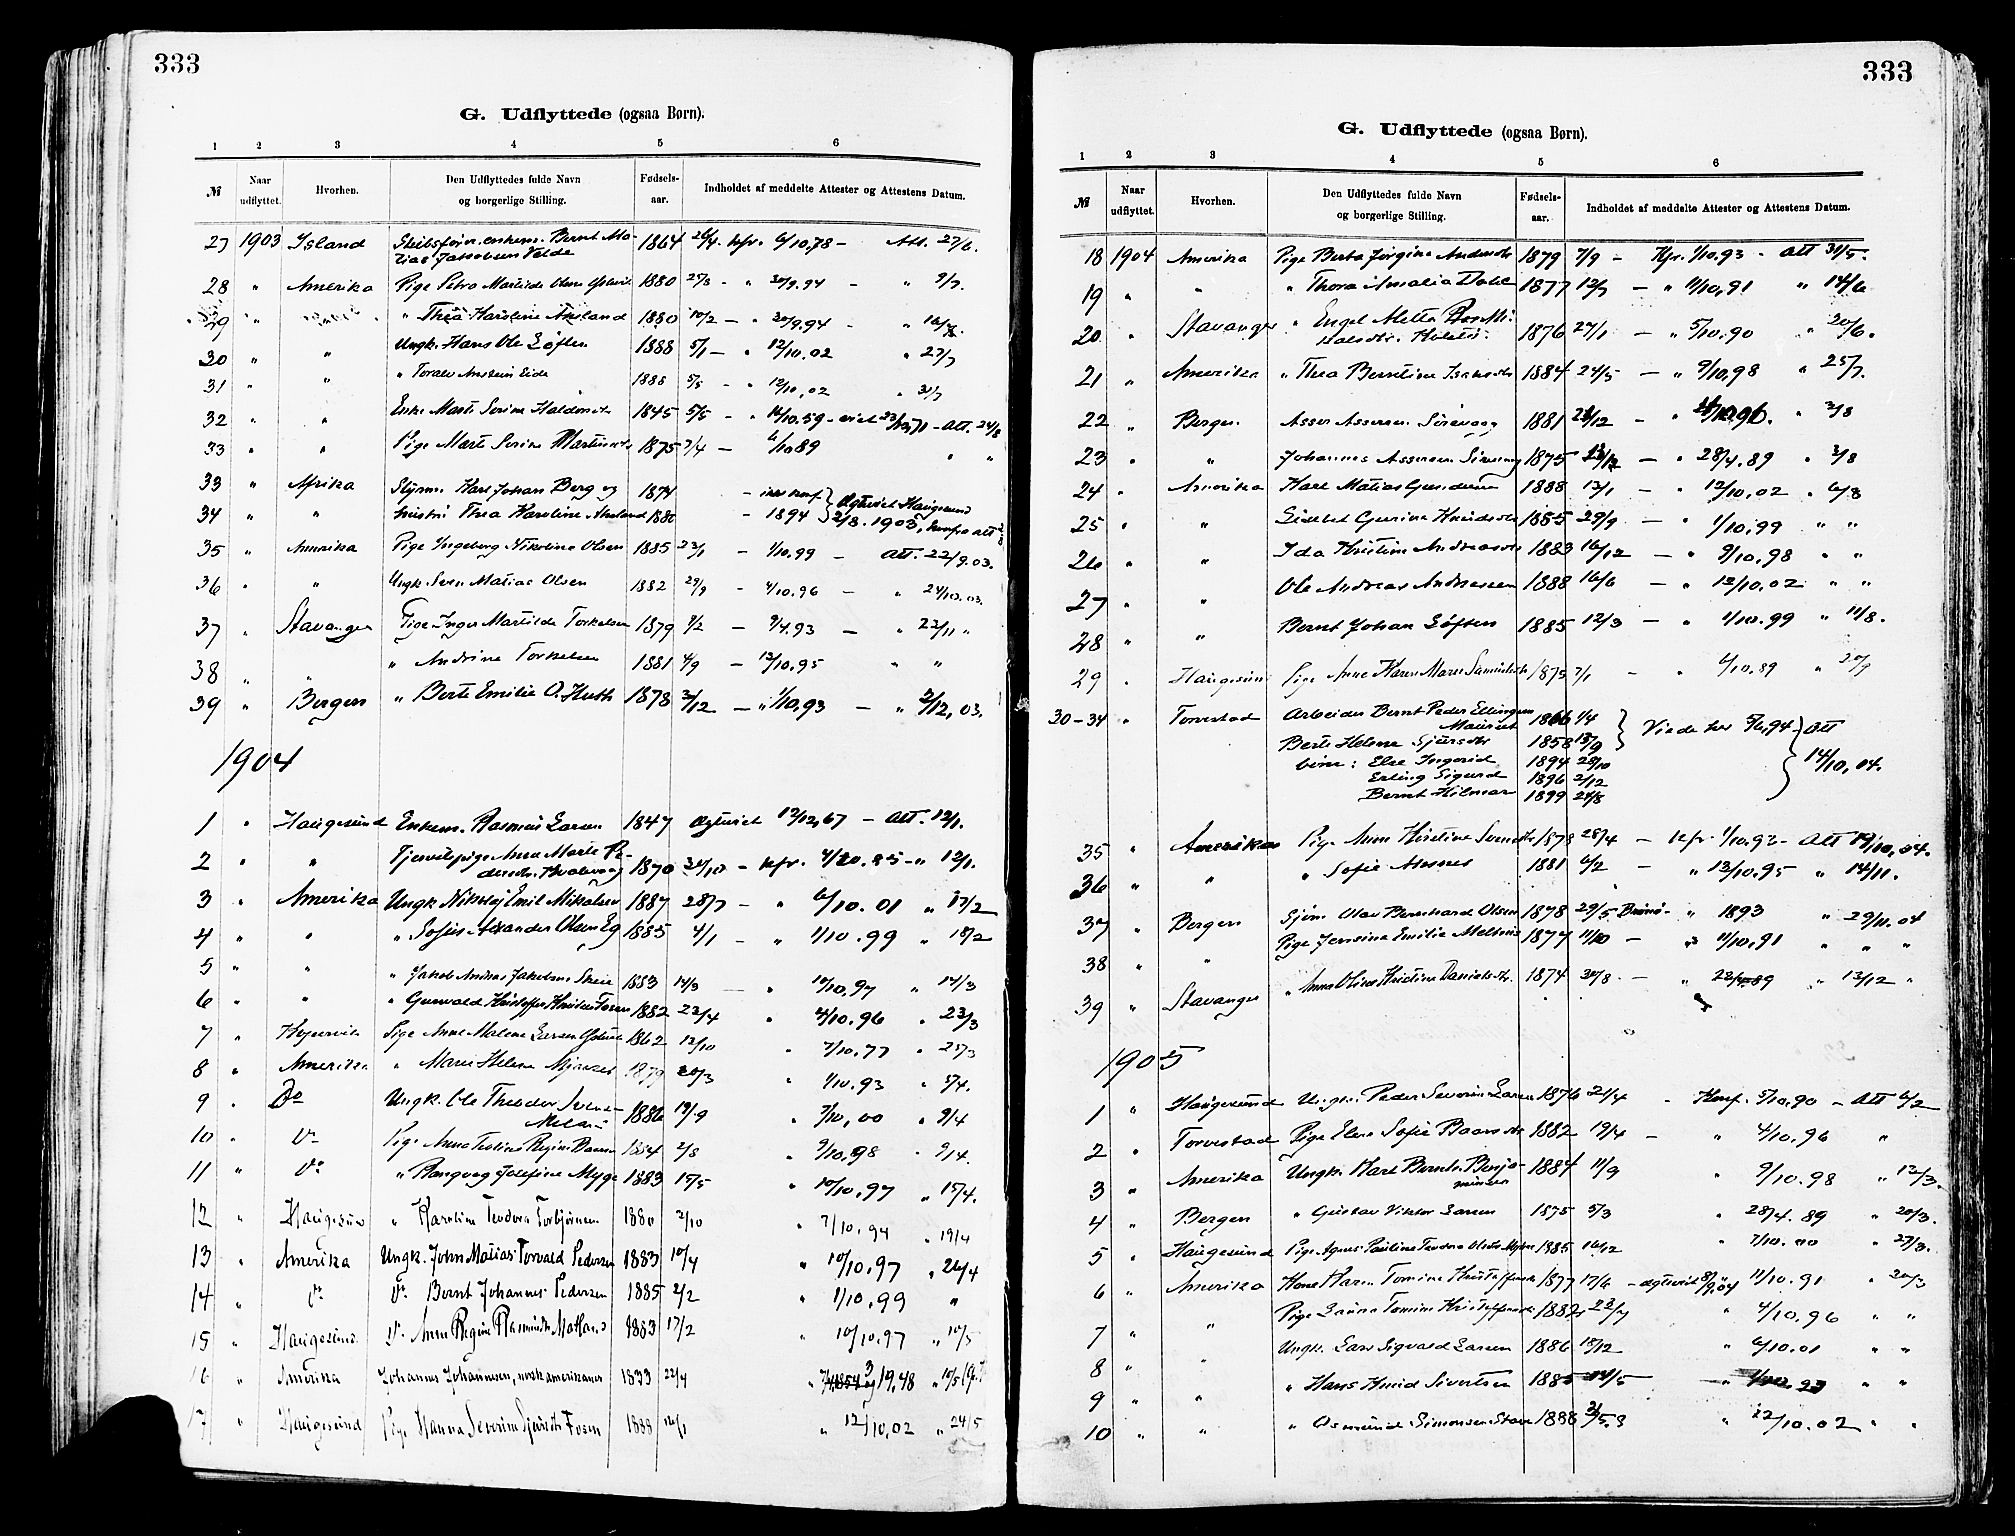 333
G. Udflyttede (ogsaa Børn).
1 2 3 4 5 6
№ Naar udflyttet. Hvorhen. Den Udflyttedes fulde Navn og borgerlige Stilling. Fødsels-aar. Indholdet af meddelte Attester og Attestens Datum.
27 1903 Island Skibsfører, enkem. Bernt Ma- 1864 26/4 - kfr. 6/10.78 - Att. 27/6.
tias Jakobsen Velde
28 " Amerika Pige Petra Martilde Olsen 1880 25/8 - " 20/9.94 - " 9/7.
29 " Thea Karoline Aasland 1880 10/2 - " 20/9.94 - " 16/7.
30 " " Ungk. Hans Ole Løften 1888 5/1 - " 12/10.02 " 27/7
31 " " " Toralv Eide 1888 5/5 - " 12/10.02 " 31/7
32 " " Enke Marte Serine Haldorsdtr 1845 5/5 - " 16/10.59 - viet 23/10.71 - Att. 24/8
33 " " Pige Marte Serine Martinsdtr 1875 7/4 - 6/10.89 " "
33 " Afrika Styrm. Karl Johan Berg og 1874 - ikke konf. Ægteviet Haugesund
34 " " hustru Thea Karoline Aasland 1880 - 1894 2/8.1903,
35 " Amerika Pige Ingeborg Nikoline Olsen 1885 23/1 - 1/10.99 - Att. 22/9.03.
36 " " Ungk. Sven Matias Olsen 1882 29/9 - 4/10.96 - " 24/10.03.
37 " Stavanger Pige Inger Martilde Torkelsen 1879 7/2 - 9/4.93 - " 22/11 "
38 " " " Andrine Torkelsen 1881 4/9 - 13/10.95 " "
39 " Bergen " Berte Emilie O. Huth 1878 3/12 - " 1/10.93 - " 2/12.03.
1904
1 " Haugesund Enkem. Rasmus Larsen 1847 Ægteviet 12/12.67 - Att. 12/1.
2 " " Tjenestepige Anna Marte Pe- 1870 31/10 - kfr. 4/10.85 - " 12/1.
dersdtr. Kvalevaag
3 " Amerika Ungk Nikolaj Emil Mikalsen 1887 28/7 - " 6/10.01 " 17/2
4 " " " Sofus Alexander Olsen Eg 1885 4/1 - " 1/10.99 " 18/2
5 " " " Jakob Andreas Jakobsen Skeie 1883 14/3 - " 10/10.97 " 14/3
6 " " " Gunvald Kristoffer Knudsen Fosen 1882 23/4 " 4/10.96 " 23/3
7 " Kopervik Pige Anne Malene Larsen 1862 12/10 " 7/10.77 " 25/3
8 " Amerika " Marie Helene 1879 20/3 " 1/10.93 " 5/4.
9 " Do Ungk. Ole Theodor 1886 19/9 " 7/10.00 " 9/4
10 " Do Pige Anna 1884 2/8 " 9/10.98 " 9/4.
11 " Do " Rangvog Josefine Myge 1883 15/5 " 10/10.97 " 15/4.
12 " Haugesund " Karoline Teodora Torbjørnsen 1880 2/10 " 7/10.94 " 19/4
13 " Amerika Ungk. John Matias Torvald Pedersen 1883 10/4 " 10/10.97 " 26/4
14 " Do Do Bernt Johannes Pedersen 1885 2/2 " 1/10.99 "
15 " Haugesund Anne Regine Rasmusdtr Matland 1883 17/2 " 10/10.97 " 10/5
16 " Amerika Johannes Johannesen, norskamerikaner 1833 22/4 " 3/9.48 " 10/5
17 " Haugesund Pige Hanna Severine Sjursdtr Fosen 1888 26/1 " 12/10.02 " 24/5
333
G. Udflyttede (ogsaa Børn).
1 2 3 4 5 6
№ Naar udflyttet. Hvorhen. Den Udflyttedes fulde Navn og borgerlige Stilling. Fødsels-aar. Indholdet af meddelte Attester og Attestens Datum.
18 1904 Amerika Pige Berta Jørgine Andersdtr 1879 7/9 - Kfr. 1/10.93 - Att 31/5.
19 " " " Thora Amalia Dahl 1877 12/7 - " 11/10.91 " 14/6
20 " Stavanger " Engel Metta 1876 27/1 - " 5/10.90 " 20/6.
21 " Amerika " Thea Berntine Isaksdtr 1884 24/5 - " 9/10.98 " 25/7.
22 " Bergen Asser Assersen Sørevaag 1881 28/12 - " 10.96. " 3/8
23 " " Johannes Assersen Sørevaag 1875 - " 28/4.89 " 3/8
24 " Amerika Karl Matias Gundersen 1888 13/1 - " 12/10.02 " 6/8
25 " " Lisebet Gurine Knudsdtr 1885 29/9 - " 1/10.99 " "
26 " " Ida Kristine Andreasdtr 1883 16/12 - " 9/10.98 " "
27 " " Ole Andreas Andreassen 1888 16/6 - " 12/10.02 " "
28 " " Bernt Johan Løften 1885 12/3 - " 1/10.99 " 11/8.
29 " Haugesund Pige Anne Karen Marie Samuelsdtr 1875 7/1 - " 6/10.89 " 20/9
30-34 " Torvestad Arbeider Bernt Peder Ellingsen 1866 1/4 Viede her 5/6.94 Att
Berte Helene Sjursdtr 1858 13/9 14/10.04.
børn: Else Ingerid 1894 28/10
Erling Sigurd 1896 2/12
Bernt Hilmar 1899 24/8
35 " Amerika Pige Anne Kristine Svensdtr 1878 28/4 - kfr. 1/10.93 - Att 14/10.04.
36 " " " Sofie Aasnes 1881 6/2 - " 13/10.95 " 14/11.
37 " Bergen Sjøm. Olav Bernhard Olsen 1878 29/5 - " 1893 " 29/11.04
38 " " Pige Jensine Emilie 1877 11/10 - " 11/10.91 " " "
39 " Stavanger " Anna Oline Kristine Danielsdtr. 1874 30/8 - " 89 " 13/12 "
1905
1 " Haugesund Ungk. Peder Severin Larsen 1876 21/4 - Konf. 5/10.90 - Att 6/2
2 " Torvestad Pige Elen Sofie Baarsdtr 1882 19/4 - " 4/10.96 "
3 " Amerika Ungk. Karl Bernt Benja- 1884 11/9 " 9/10.98 " 12/3.
minsen
4 " Bergen " Gustav Viktor Larsen 1875 5/3 " 28/4.89 " 20/3.
5 " Haugesund Pige Agnes Pauline Teodora 1885 16/12 " 7/10.00 " 27/3.
6 " Amerika Kone Karen Tomine Kristoffersdtr 1877 17/6 - ægteviet 8/9.04 11/10.91 " 20/3
7 " " Pige Laura Tomine Kristoffersdtr 1882 23/7 " 4/10.96 " "
8 " " Ungk. Lars Sigvald Larsen 1886 15/12 " 6/10.01 " "
9 " " " Hans Knud Sivertsen 1885 " " "
10 " " " Osmund Simonsen 1888 " 12/10.02 " "